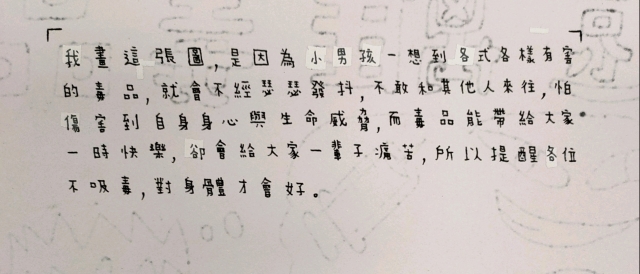 我畫這張圖,是因為小男孩一想到各式各樣有害
的毒品,就會不經瑟瑟發抖,不敢和其他人來往,怕
傷害到自身身心與生命威脅,而毒品能帶給大家
一時快樂,卻會給大家一輩子痛苦,所以提醒各位
不吸毒,對身體才會好。